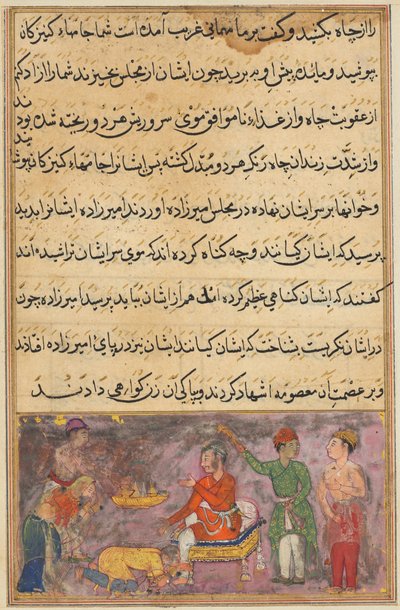 را از چاه بکنید و گفت بر ما مهمانی غریب آمده است شما جامهاء کنیزکان
بپوشید و مایده پیش او ببرید چون ایشان از مجلس بخیزند شما را آزاد کنم
از عقوبت چاه و از غذاء ناموافق موی سر و ریش هر دو ریخته شده بودند
و از شدت زندان چاه رنگ هر دو مبدل گشته پس ایشانرا جامهاء کنیزکان پوشانیدند
و خوانها بر سر ایشان نهاده در مجلس امیرزاده اوردند امیرزاده ایشانرا بدید
پرسید که ایشان کیانند و چه گناه کرده اند که موی سر ایشان تراشیده اند
گفتند که ایشان گناهی عظیم کرده اند هم از ایشان بباید پرسید امیرزاده چون
در ایشان نگریست بشناخت که ایشان کیانند ایشان نیز در پای امیرزاده افتادند
و بر عصمت آن معصومه اشهاد کردند و بپاکی آن زن گواهی دادند